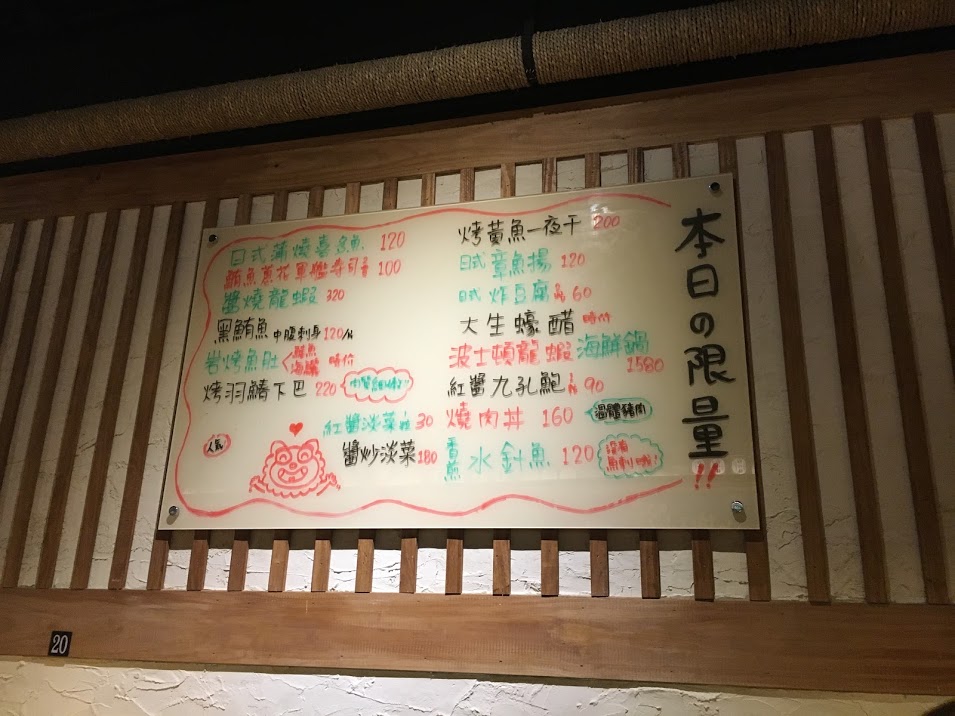 本日の限量!!
烤黃魚一夜干 200
日式 章魚揚 120
日式 炸豆腐 60
大生蠔 醋 時價
波士頓龍蝦海鮮鍋 1580
紅醬九孔鮑 90
燒肉丼 160 溫體豬肉
香煎水針魚 120 沒有魚刺哦!
日式蒲燒 魚 120
鮪魚蔥花軍艦壽司 100
醬燒龍蝦 320
黑鮪魚中腹刺身 120
岩烤魚肚 時價
烤羽鰆下巴 220 肉質細嫩
紅醬淡菜 30
人氣 醬炒淡菜 180
20